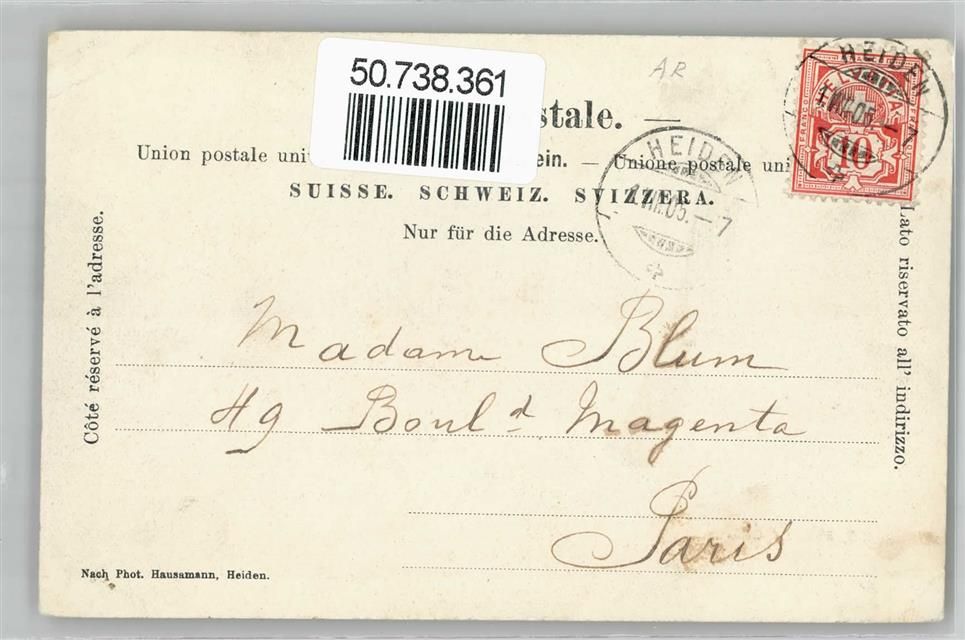 50.738.361
stale. —
AR
Union postale uni ein. — Unione postale uni
SUISSE. SCHWEIZ. SVIZZERA.
Nur für die Adresse.
HEIDEN
05. – 7
HEIDEN
05 – 7
HELVETIA
FRANCO
10
Côté réservé à l'adresse.
Lato riservato all' indirizzo.
Madame Blum
49 Boul d. Magenta
Paris
Nach Phot. Hausamann, Heiden.